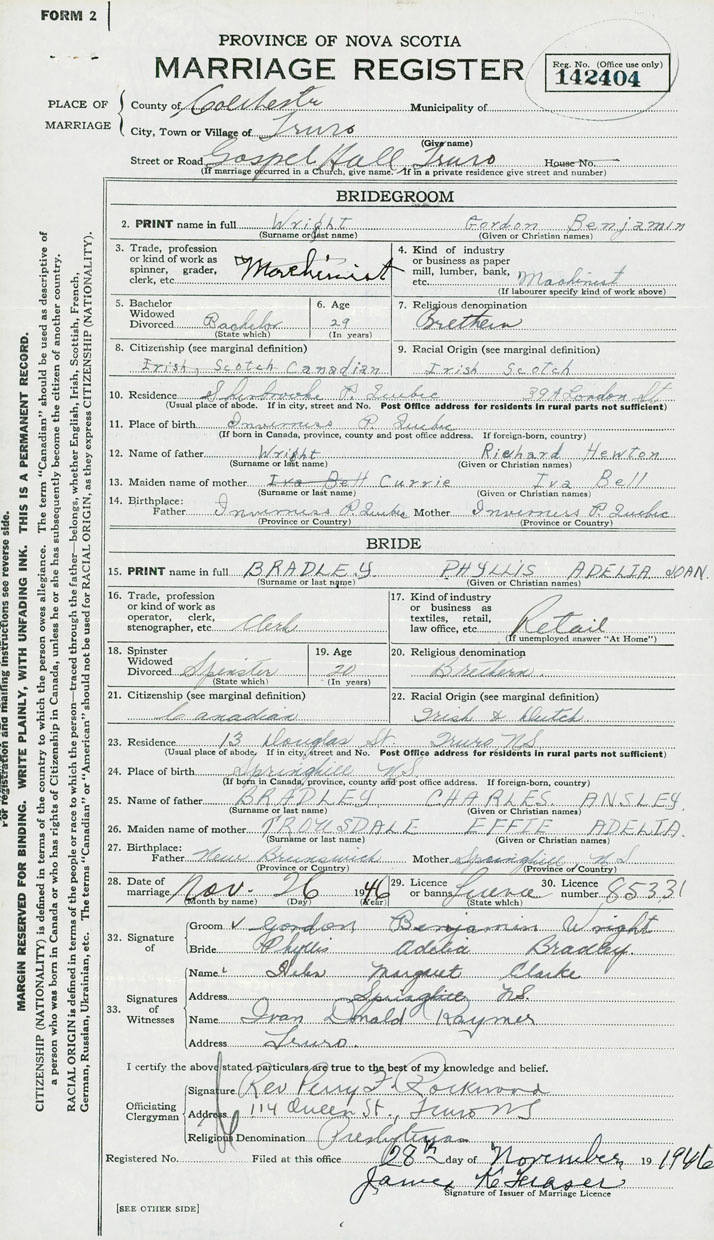 FORM 2
PROVINCE OF NOVA SCOTIA
MARRIAGE REGISTER
Reg. No. (Office use only)
142404
PLACE OF MARRIAGE
County of Colchestr Municipality of
City, Town or Village of Truro
(Give name)
Street or Road Gospel Hall Truro House No.
(If marriage occurred in a Church, give name. If in a private residence give street and number)
BRIDEGROOM
2. PRINT name in full Wright Gordon Benjamin
(Surname or last name) (Given or Christian names)
3. Trade, profession or kind of work as spinner, grader, clerk, etc. Machinist
4. Kind of industry or business as paper mill, lumber, bank, etc. Machinist
(If labourer specify kind of work above)
5. Bachelor Widowed Divorced Bachelor
(State which)
6. Age 29
(In years)
7. Religious denomination
Brethern
8. Citizenship (see marginal definition)
Irish, Scotch Canadian
9. Racial Origin (see marginal definition)
Irish Scotch
10. Residence Sherbrooke P. Quebic 39A London St
(Usual place of abode. If in city, street and No. Post Office address for residents in rural parts not sufficient)
11. Place of birth Inverness P. Quebic
(If born in Canada, province, county and post office address. If foreign-born, country)
12. Name of father Wright Richard Hewton
(Surname or last name) (Given or Christian names)
13. Maiden name of mother Iva Bell Currie Iva Bell
(Surname or last name) (Given or Christian names)
14. Birthplace:
Father Inverness P. Quebic Mother Inverness P. Quebic
(Province or Country) (Province or Country)
BRIDE
15. PRINT name in full BRADLEY PHYLLIS ADELIA JOAN.
(Surname or last name) (Given or Christian names)
16. Trade, profession or kind of work as operator, clerk, stenographer, etc. Clerk
17. Kind of industry or business as textiles, retail, law office, etc. Retail
(If unemployed answer "At Home")
18. Spinster Widowed Divorced Spinster
(State which)
19. Age 20
(In years)
20. Religious denomination
Brethern.
21. Citizenship (see marginal definition)
Canadian
22. Racial Origin (see marginal definition)
Irish & Dutch.
23. Residence 13 Douglas St. Truro N.S.
(Usual place of abode. If in city, street and No. Post Office address for residents in rural parts not sufficient)
24. Place of birth Springhill N.S.
(If born in Canada, province, county and post office address. If foreign-born, country)
25. Name of father BRADLEY CHARLES. ANSLEY.
(Surname or last name) (Given or Christian names)
26. Maiden name of mother TROUSDALE EFFIE ADELIA.
(Surname or last name) (Given or Christian names)
27. Birthplace:
Father New Brunswick Mother Springhill, N.S
(Province or Country) (Province or Country)
28. Date of marriage Nov. 26 1946
(Month by name) (Day) (Year)
29. Licence or banns Licence
(State which)
30. Licence number 85331
32. Signature of
Groom Gordon Benjamin Wright
Bride Phyllis Adelia Bradley.
33. Signatures of Witnesses
Name Helen Margaret Clarke
Address Springhill N.S.
Name Ivan Donald Kaymer
Address Truro.
I certify the above stated particulars are true to the best of my knowledge and belief.
Officiating Clergyman
Signature Rev Perry F. Rockwood
Address 114 Queen St., Truro N S
Religious Denomination Presbyterian
Registered No. Filed at this office 28th day of November 19 1946
James K Fraser
Signature of Issuer of Marriage Licence
[SEE OTHER SIDE]
For registration and mailing instructions see reverse side.
MARGIN RESERVED FOR BINDING. WRITE PLAINLY, WITH UNFADING INK. THIS IS A PERMANENT RECORD.
CITIZENSHIP (NATIONALITY) is defined in terms of the country to which the person owes allegiance. The term "Canadian" should be used as descriptive of
a person who was born in Canada or who has rights of Citizenship in Canada, unless he or she has subsequently become the citizen of another country.
RACIAL ORIGIN is defined in terms of the people or race to which the person—traced through the father—belongs, whether English, Irish, Scottish, French,
German, Russian, Ukrainian, etc. The terms "Canadian" or "American" should not be used for RACIAL ORIGIN, as they express CITIZENSHIP (NATIONALITY).